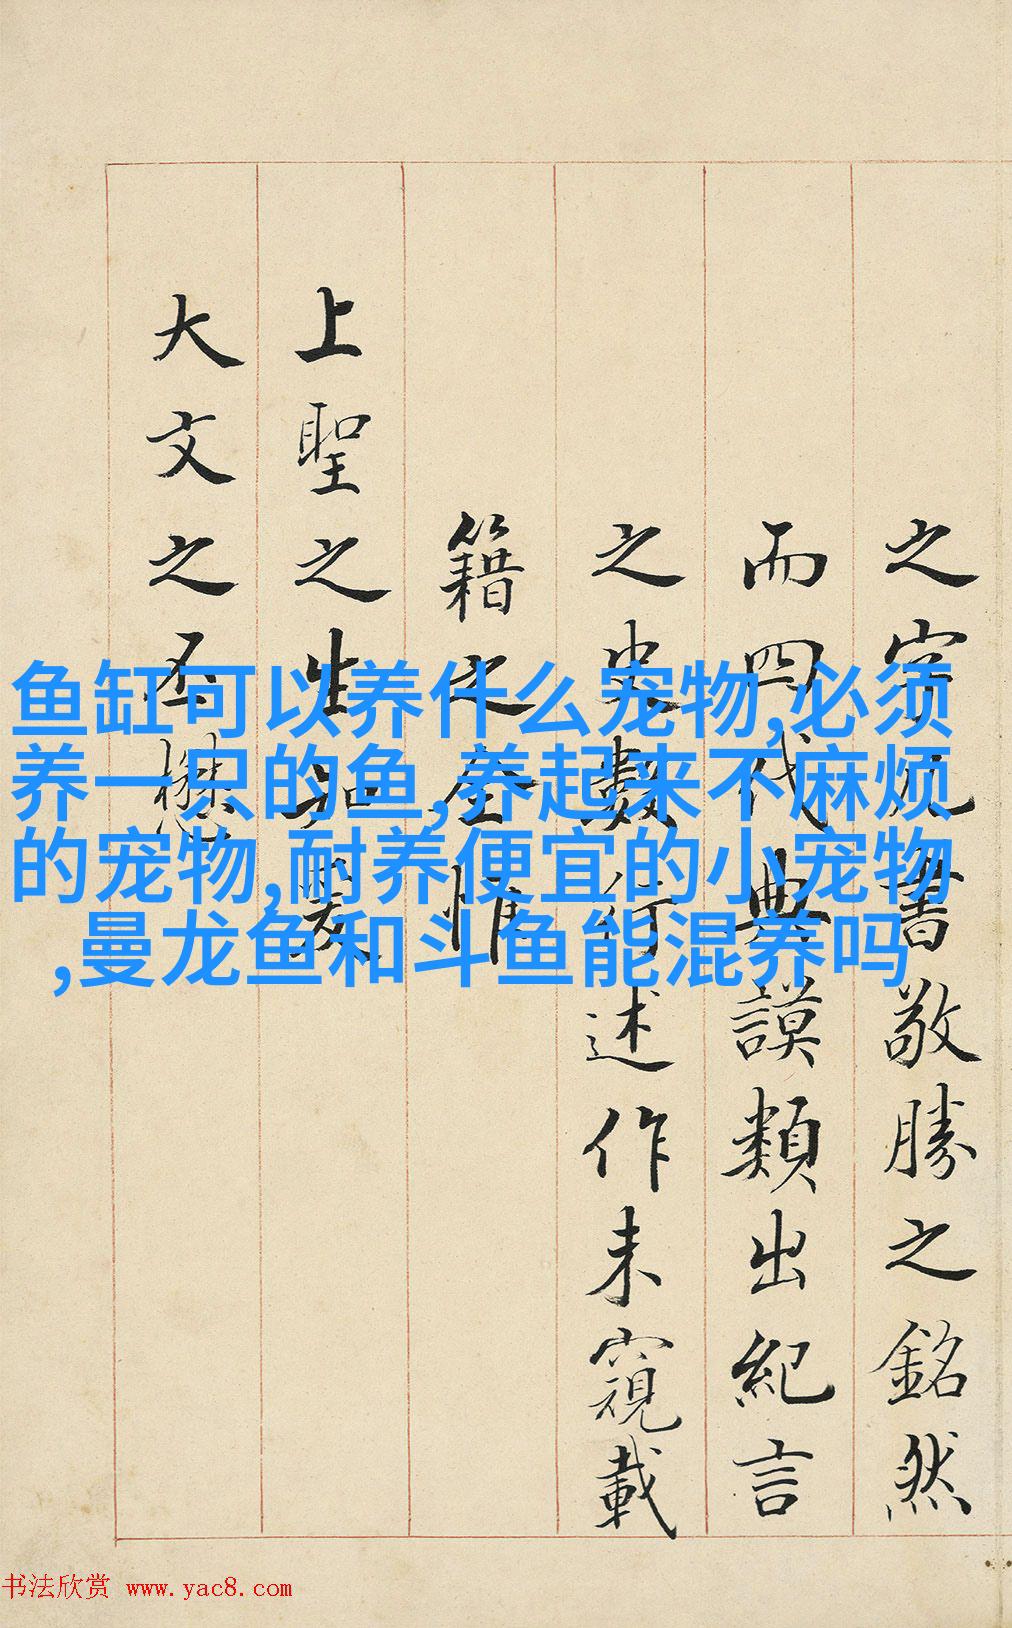 鱼缸可以养什么宠物,必须
养一只的鱼,养起来不麻烦
的宠物,耐养便宜的小宠物
,曼龙鱼和斗鱼能混养吗
之書敬勝之銘然
而四代典謨類出紀言
之史數行述作未窺載
籍之奎惟
上聖之生
大文之丕
书法欣赏 www.yac8.com